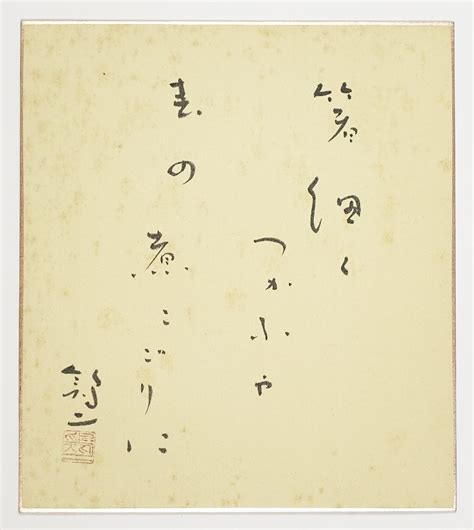 箸細く
つかふや
春の煮こごりに